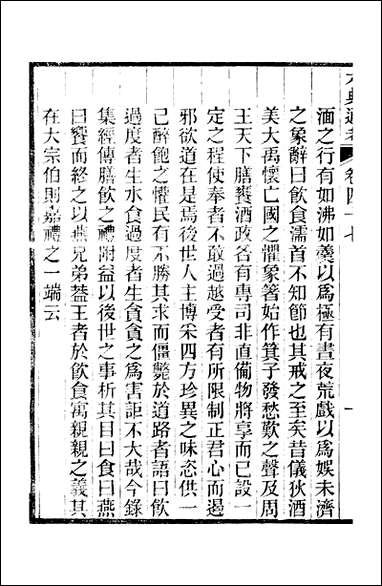 六典通考
卷四十七
一
湎之行有如沸如羹以爲極有晝夜荒戲以爲娛未濟
之象辭曰飲食濡首不知節也其戒之至矣昔儀狄酒
美大禹懷亡國之懼象箸始作箕子發愁歎之聲及周
王天下膳饔酒政各有專司非直備物將享而已設一
定之程使奉者不敢過越受者有所限制正君心而遏
邪欲道在是焉後世人主博采四方珍異之味恣供一
己醉飽之懽民有不勝其求而僵斃於道路者語曰飲
過度者生水食過度者生貪貪之爲害詎不大哉今錄
集經傳膳飲之禮附益以後世之事析其目曰食曰燕
曰饗而終之以燕兄弟葢王者於飲食寓親親之義其
在大宗伯則嘉禮之一端云